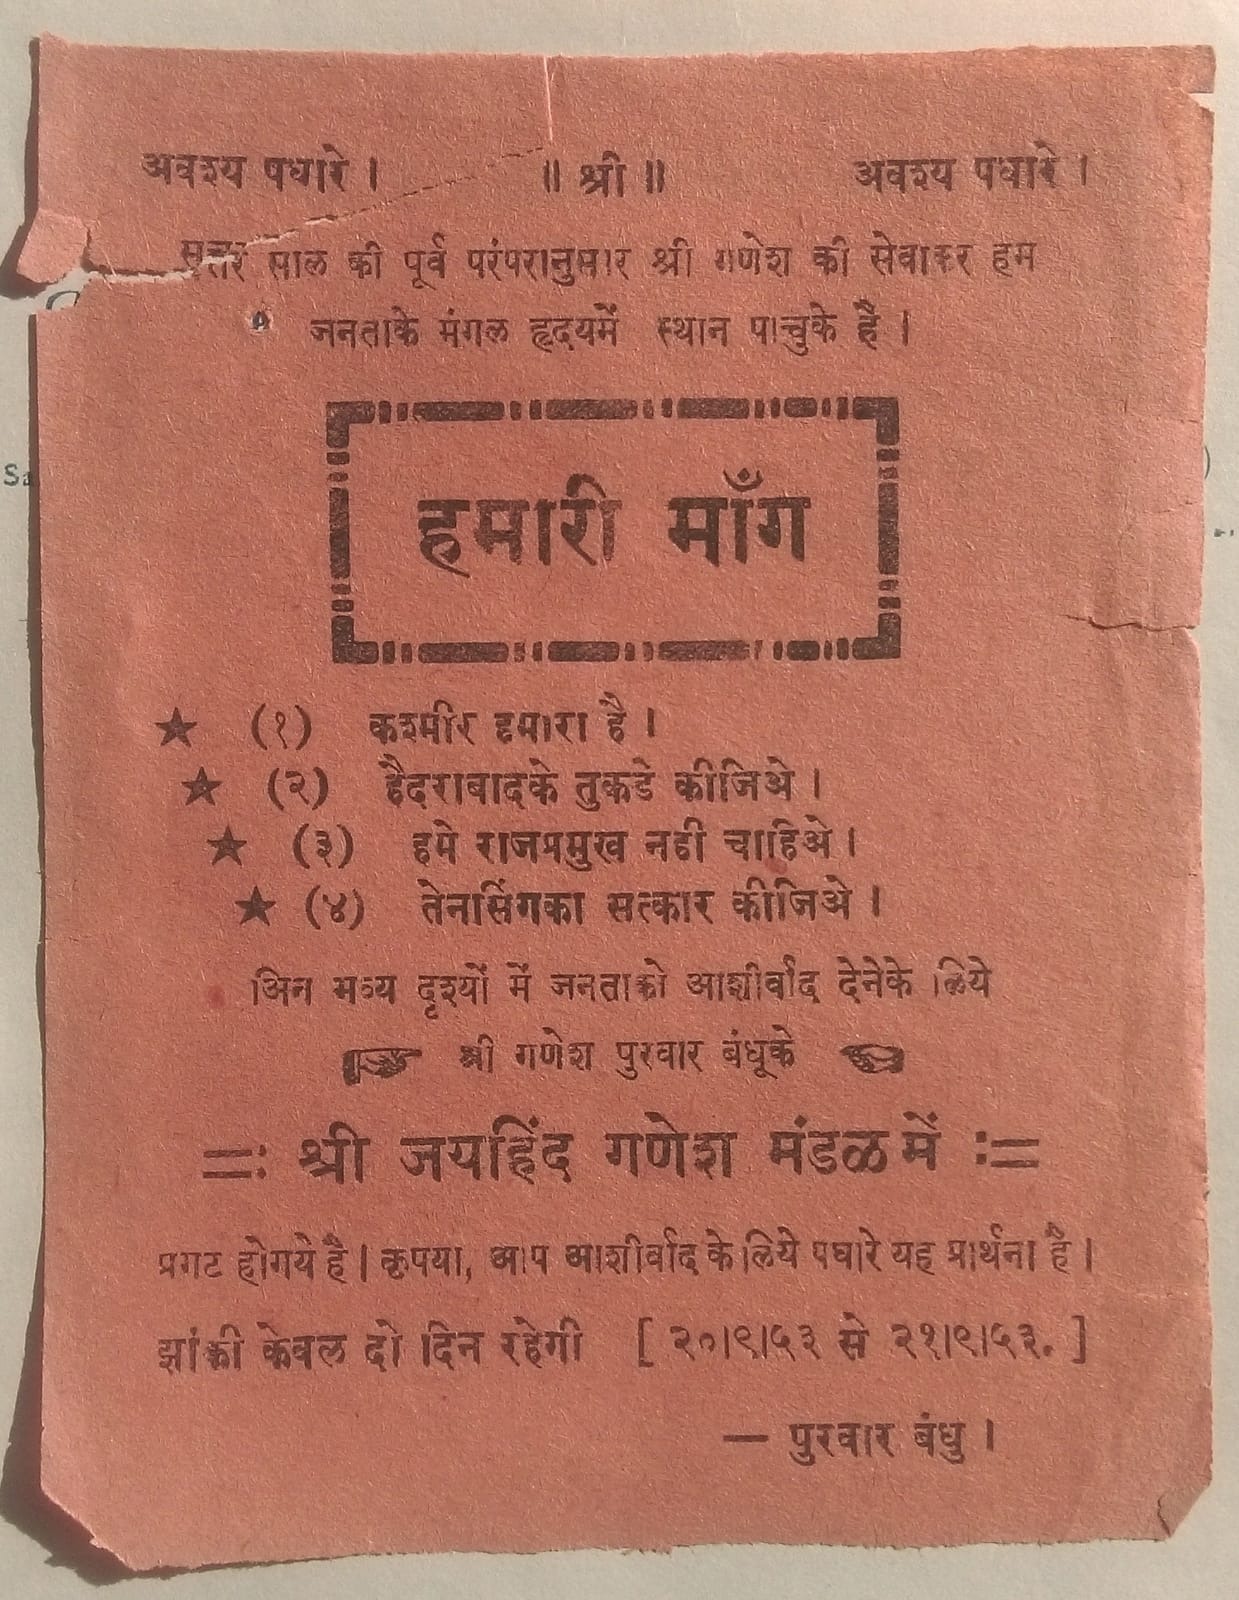 अवश्य पधारे । ॥ श्री ॥ अवश्य पधारे ।
सत्तर साल की पूर्व परंपरानुसार श्री गणेश की सेवाकर हम
जनताके मंगल हृदयमें स्थान पाचुके है ।
हमारी माँग
★ (१) कश्मीर हमारा है ।
★ (२) हैदराबादके तुकडे कीजिअे ।
★ (३) हमे राजप्रमुख नही चाहिअे ।
★ (४) तेनसिंगका सत्कार कीजिअे ।
अिन भव्य दृश्यों में जनताको आशीर्वाद देनेके लिये
श्री गणेश पुरवार बंधूके
=: श्री जयहिंद गणेश मंडळमें :=
प्रगट होगये है । कृपया, आप आशीर्वाद के लिये पधारे यह प्रार्थना है ।
झांकी केवल दो दिन रहेगी [ २०।९।५३ से २१।९।५३. ]
— पुरवार बंधु ।